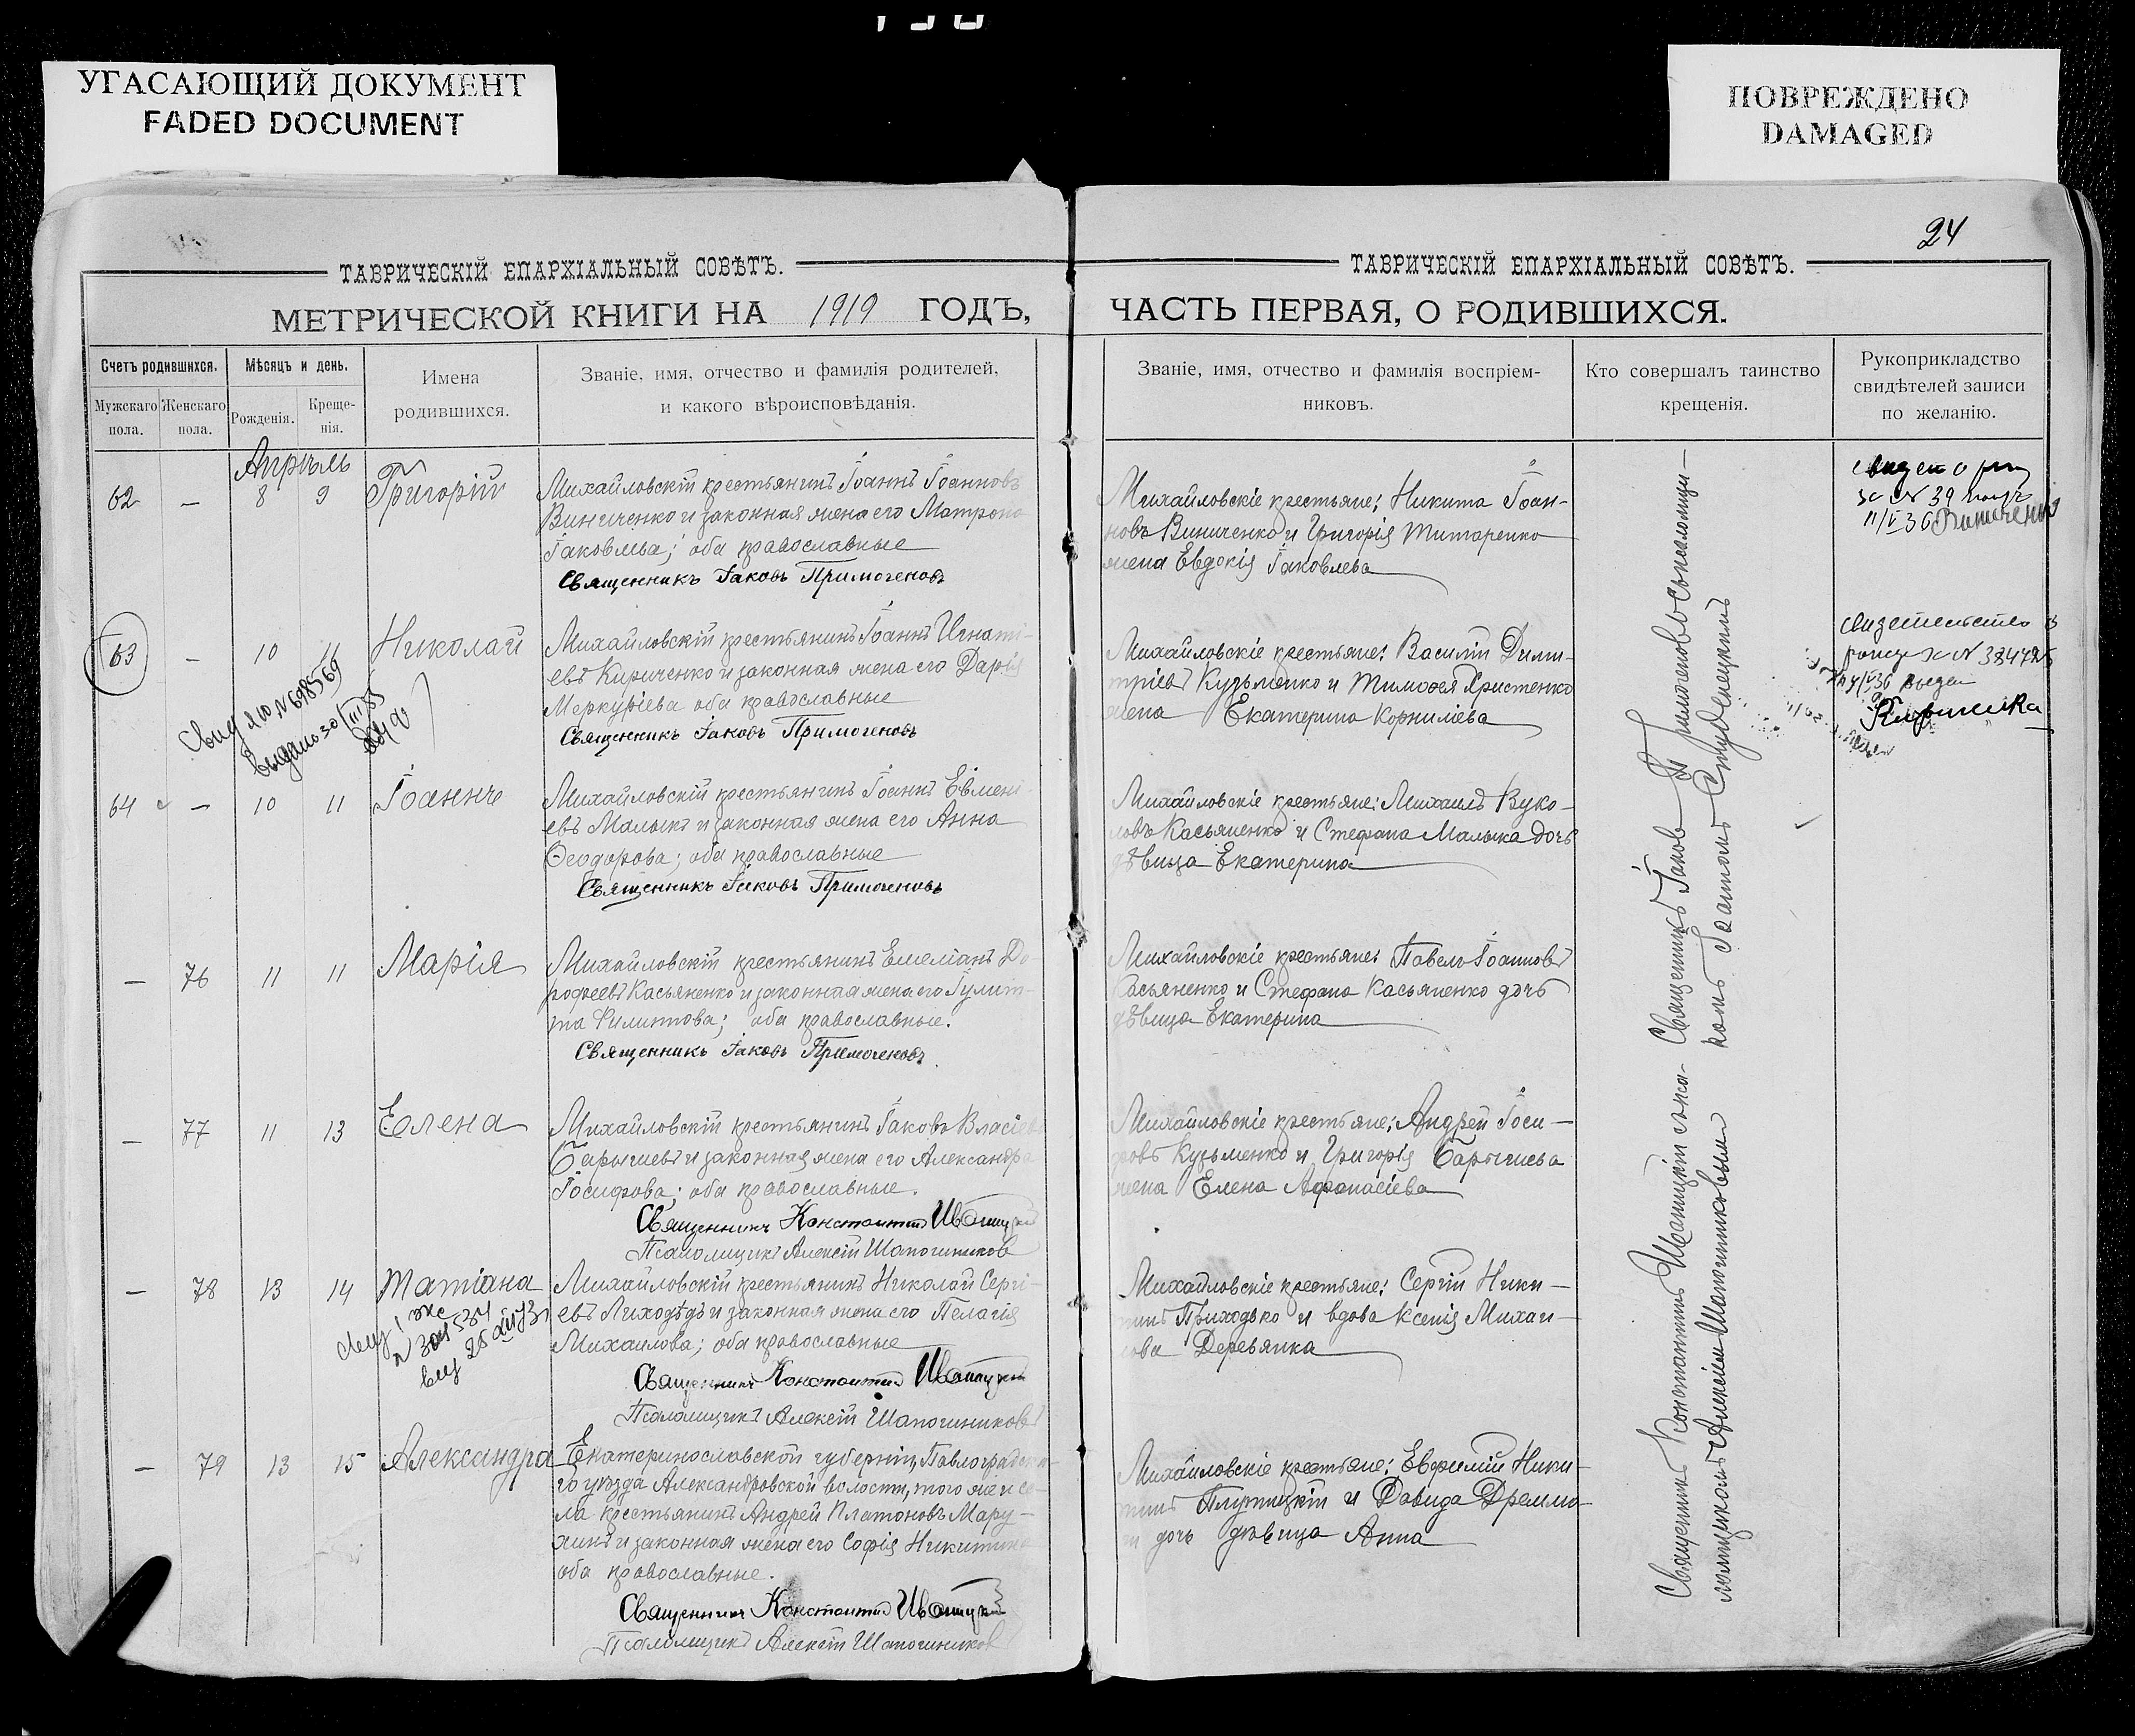 УГАСАЮЩИЙ ДОКУМЕНТ
FADED DOCUMENT
ПОВРЕЖДЕНО
DAMAGED
24
ТАВРИЧЕСКІЙ ЕПАРХІАЛЬНЫЙ СОВѢТЪ.
МЕТРИЧЕСКОЙ КНИГИ НА 1919 ГОДЪ,
Счетъ родившихся.
Мужскаго пола.
Женскаго пола.
Мѣсяцъ и день.
Рожденія.
Креще-
нія.
Имена
родившихся.
Званіе, имя, отчество и фамилія родителей,
и какого вѣроисповѣданія.
Апрѣль
62 — 8 9 Григорій
Михайловскій крестьянинъ Іоаннъ Іоанновъ
Виниченко и законная жена его Матрона
Іаковлева; оба православные
Священникъ Іаковъ Примогеновъ
63 — 10 11 Николай
Михайловскій крестьянинъ Іоаннъ Игнаті-
евъ Кириченко и законная жена его Дарія
Меркуріева оба православные
Священникъ Іаковъ Примогеновъ
№ 698569
выдано 30/III 35
64 — 10 11 Іоаннъ
Михайловскій крестьянинъ Іоаннъ Евмені-
евъ Малыкъ и законная жена его Анна
Ѳеодорова; оба православные
Священникъ Іаковъ Примогеновъ
— 76 11 11 Марія
Михайловскій крестьянинъ Емеліанъ До-
роѳеевъ Касьяненко и законная жена его Іулит-
та Филиппова; оба православные.
Священникъ Іаковъ Примогеновъ.
— 77 11 13 Елена
Михайловскій крестьянинъ Іаковъ Власіевъ
Барышевъ и законная жена его Александра
Іосифова; оба православные.
Священникъ Константинъ Иваницкій
Псаломщикъ Алексій Шапошниковъ
— 78 13 14 Татіана
Михайловскій крестьянинъ Николай Сергі-
евъ Лиходѣдъ и законная жена его Пелагія
Михаилова; оба православные
Священникъ Константинъ Иваницкій
Псаломщикъ Алексій Шапошниковъ
— 79 13 15 Александра
Екатеринославской губерніи, Павлоградска-
го уѣзда Александровской волости, того же и се-
ла крестьянинъ Андрей Платоновъ Мару-
and законная жена его Софія Никитина
оба православные.
Священникъ Константинъ Иваницкій
Псаломщикъ Алексій Шапошниковъ
ТАВРИЧЕСКІЙ ЕПАРХІАЛЬНЫЙ СОВѢТЪ.
ЧАСТЬ ПЕРВАЯ, О РОДИВШИХСЯ.
Званіе, имя, отчество и фамилія воспріем-
никовъ.
Кто совершалъ таинство
крещенія.
Рукоприкладство
свидѣтелей записи
по желанію.
Михайловскіе крестьяне: Никита Іоан-
новъ Виниченко и Григорія Титаренко
жена Евдокія Іаковлева
Михайловскіе крестьяне: Василій Дими-
тріевъ Кузьменко и Тимоѳея Христенко
жена Екатерина Корниліева
Михайловскіе крестьяне: Михаилъ Вуко-
ловъ Касьяненко и Стефана Малыка дочь
дѣвица Екатерина
Михайловскіе крестьяне: Павелъ Іоанновъ
Касьяненко и Стефана Касьяненко дочь
дѣвица Екатерина
Михайловскіе крестьяне: Андрей Іоси-
фовъ Кузьменко и Григорія Барышева
жена Елена Аѳанасіева
Михайловскіе крестьяне: Сергій Ники-
тинъ Приходько и вдова Ксенія Михаи-
лова Деревянка
Михайловскіе крестьяне: Евфимій Ники-
тинъ Плужицкій и Давида
дочь дѣвица Анна
Священникъ Іаковъ Примогеновъ съ псаломщи-
комъ Іоанномъ Студенецкимъ
Священникъ Константинъ Иваницкій съ пса-
ломщикомъ Алексіемъ Шапошниковымъ
№ 39
11/V 36 Виниченко
№ 384725